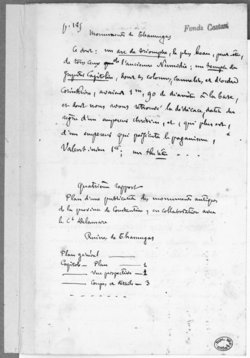 (p. 185)
Fonds Costa
Monuments de Thamugas
Ce sont : un arc de triomphe, le plus beau, peut-être,
de tous ceux que l'ancienne Numidie ; un temple de
Jupiter Capitolin, dont les colonnes, cannelées, et d'ordre
Corinthien, avaient 1m,90 de diamètre à la base,
et dont nous avons retrouvé la dédicace, datée du
règne d'un empereur chrétien, et, qui plus est,
d'un empereur qui persécuta le paganisme,
Valentinien Ier ; un théâtre . . .
Quatrième rapport
Plan d'une publication des monuments antiques
de la province de Constantine, en collaboration avec
le Ct Delamare
Ruines de Thamugas
Plan général
Capitole — Plan — 1
— Vue perspective — 2
— Coupes et détails — 3